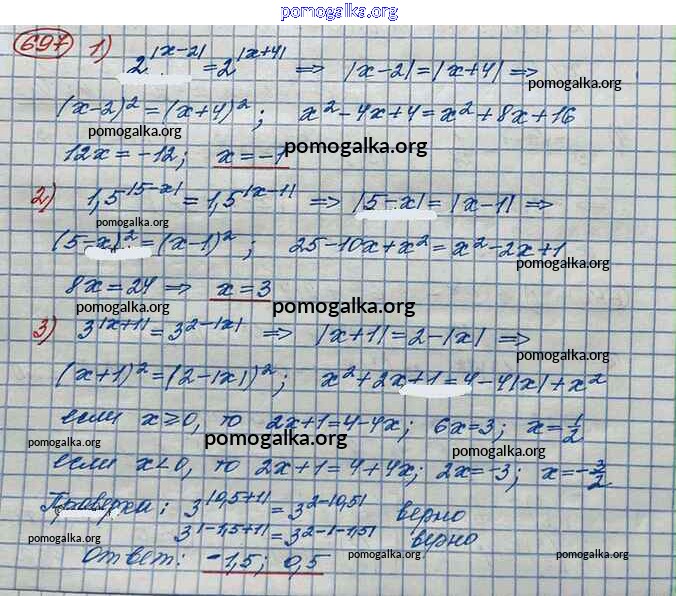 pomogalka.org
697 1) 2^|x-2| = 2^|x+4| ⇒ |x-2| = |x+4| ⇒
pomogalka.org
(x-2)² = (x+4)²; x² - 4x + 4 = x² + 8x + 16
pomogalka.org
12x = -12; x = -1 pomogalka.org
2) 1,5^|5-x| = 1,5^|x-1| ⇒ |5-x| = |x-1| ⇒
pomogalka.org
(5-x)² = (x-1)²; 25 - 10x + x² = x² - 2x + 1
pomogalka.org
8x = 24 ⇒ x = 3
pomogalka.org pomogalka.org
3) 3^|x+1| = 3^2-|x| ⇒ |x+1| = 2-|x| ⇒
pomogalka.org
(x+1)² = (2-|x|)²; x² + 2x + 1 = 4 - 4|x| + x²
если x ≥ 0, то 2x+1 = 4-4x; 6x = 3; x = 1/2
pomogalka.org pomogalka.org
если x < 0, то 2x+1 = 4+4x; 2x = -3; x = -3/2
pomogalka.org
Проверка: 3^|0,5+1| = 3^2-|0,5| верно
3^|-1,5+1| = 3^2-|-1,5| верно
pomogalka.org pomogalka.org pomogalka.org
Ответ: -1,5; 0,5